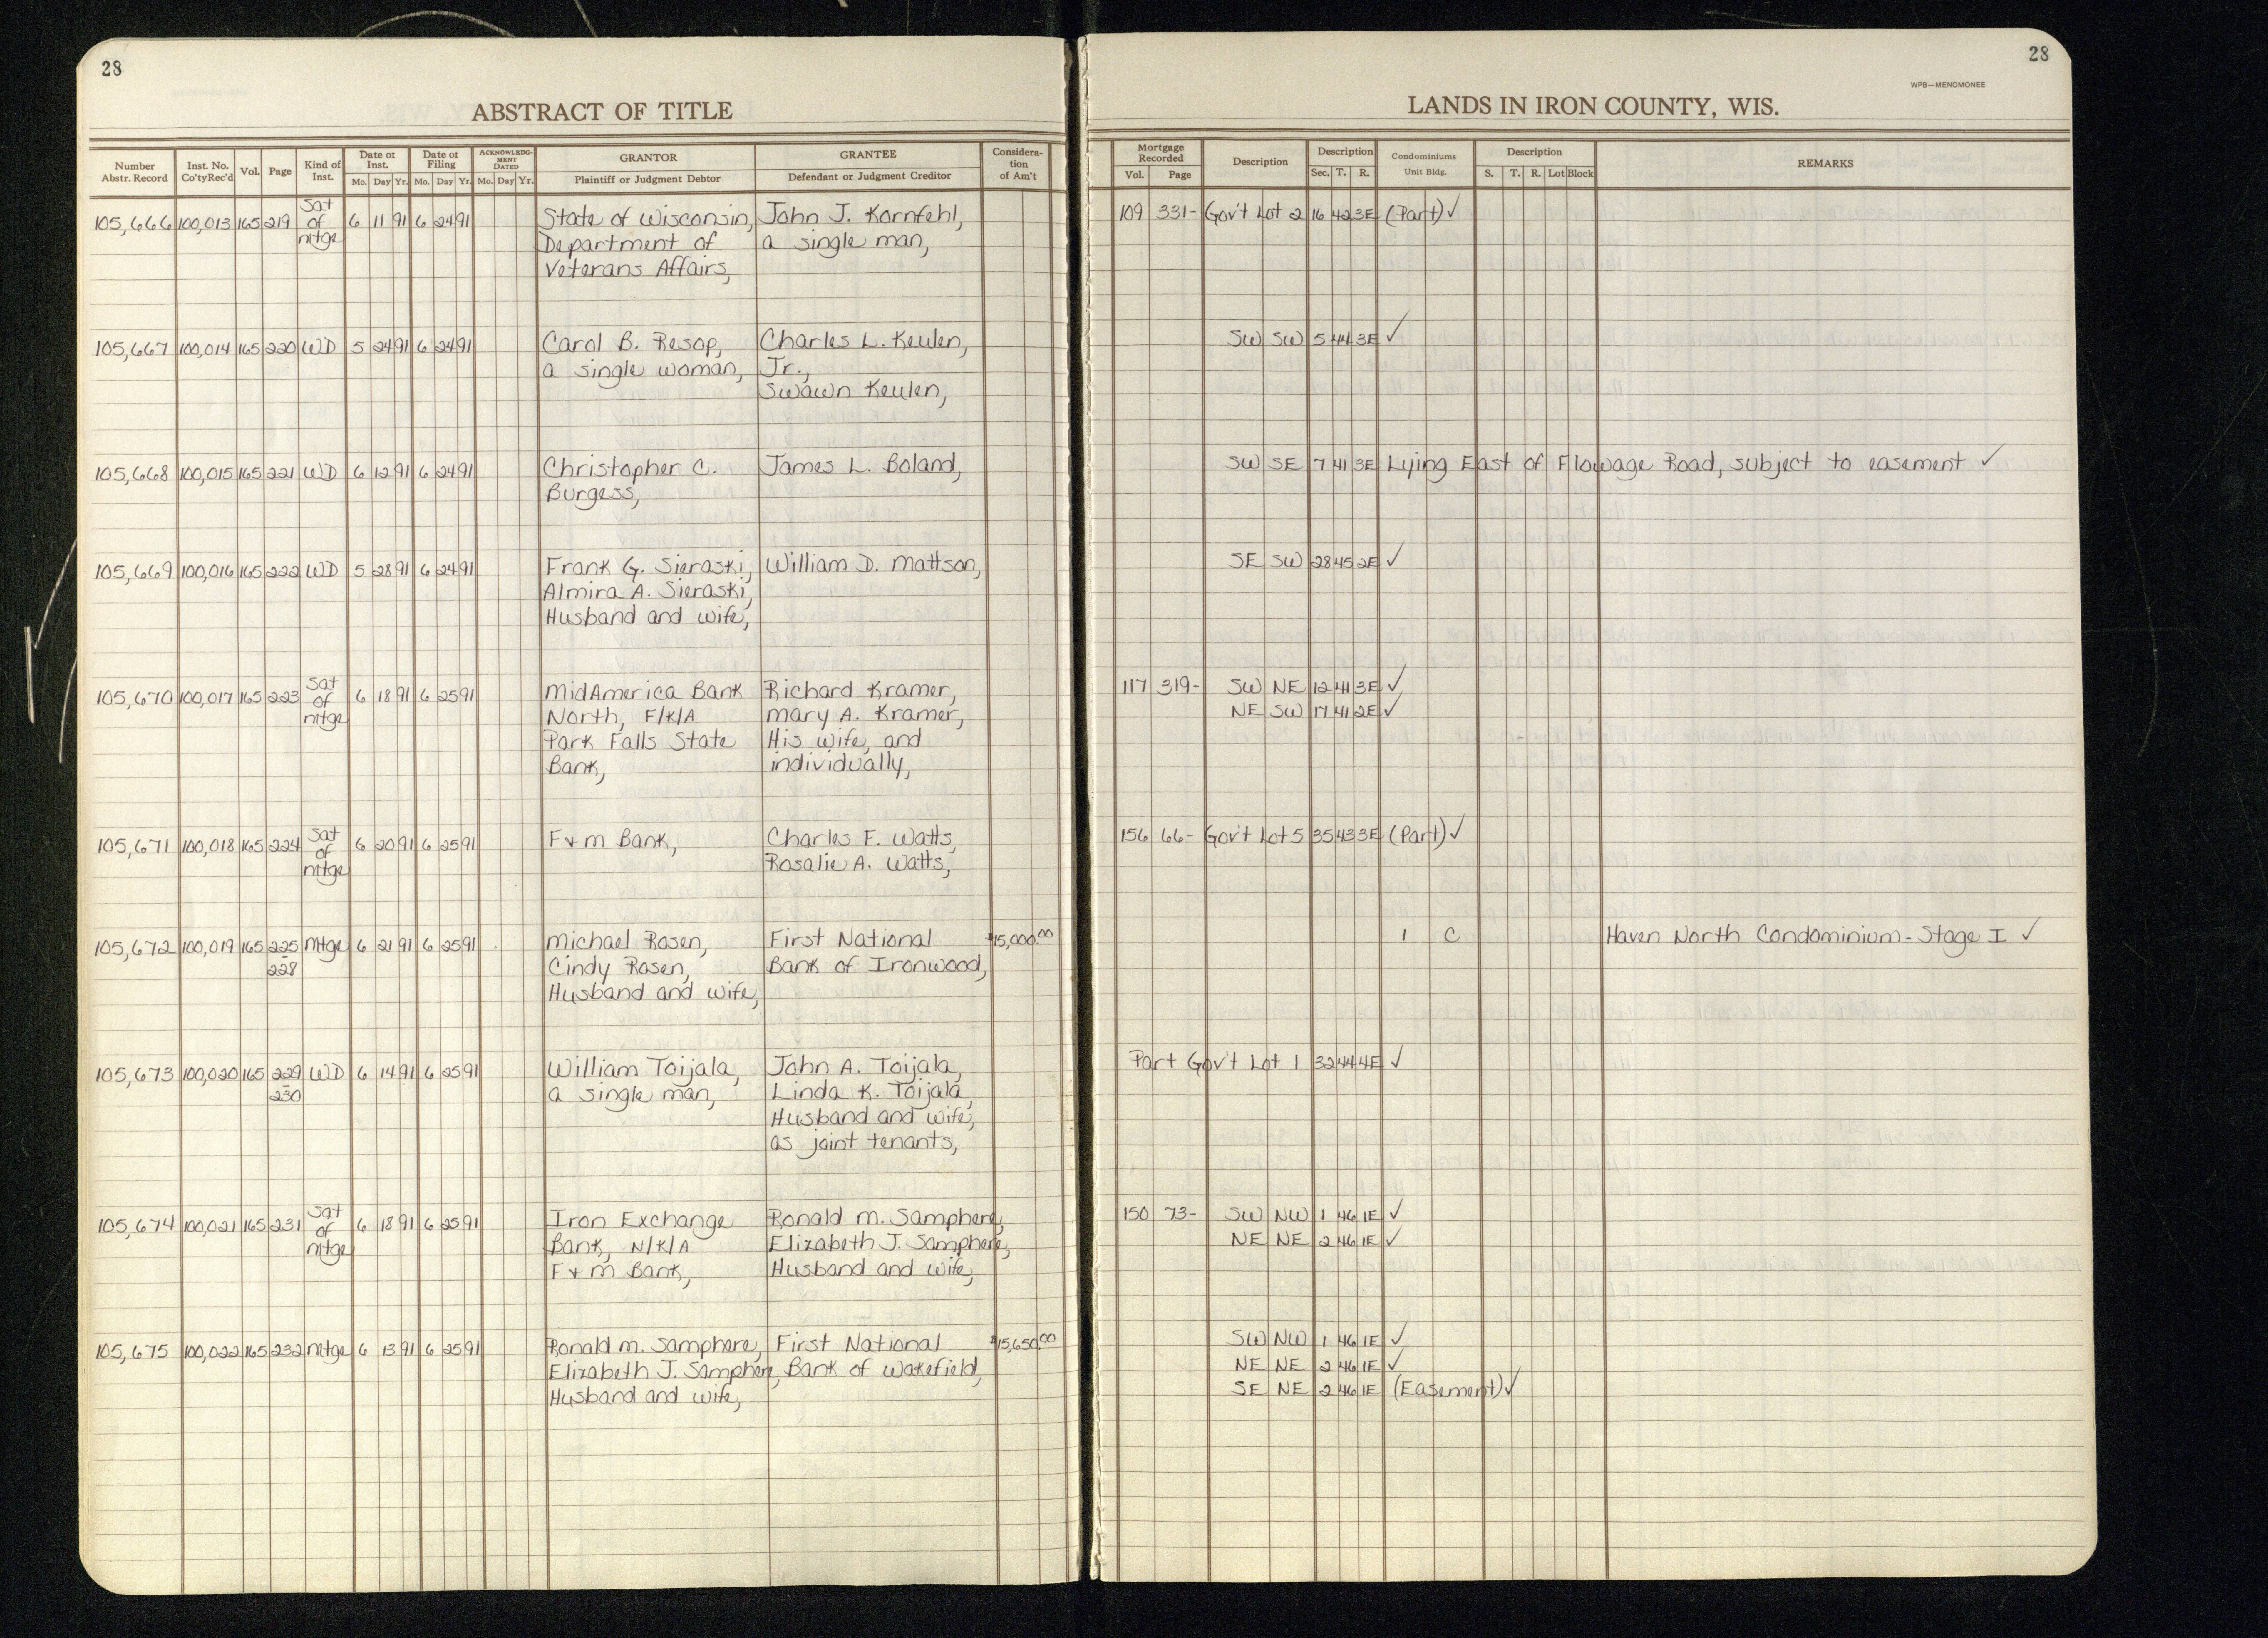 28
ABSTRACT OF TITLE
Number Abstr. Record | Inst. No. Co'tyRec'd | Vol. | Page | Kind of Inst. | Date of Inst. Mo. Day Yr. | Date of Filing Mo. Day Yr. | ACKNOWLEDGMENT DATED Mo. Day Yr. | GRANTOR Plaintiff or Judgment Debtor | GRANTEE Defendant or Judgment Creditor | Consideration of Am't
105,666 100,013 165 219 Sat of mtge 6 11 91 6 24 91 State of Wisconsin, John J. Kornfehl,
Department of a single man,
Veterans Affairs,
105,667 100,014 165 220 WD 5 24 91 6 24 91 Carol B. Resop, Charles L. Keulen,
a single woman, Jr.,
Swawn Keulen,
105,668 100,015 165 221 WD 6 12 91 6 24 91 Christopher C. James L. Boland,
Burgess,
105,669 100,016 165 222 WD 5 28 91 6 24 91 Frank G. Sieraski, William D. Mattson,
Almira A. Sieraski,
Husband and wife,
105,670 100,017 165 223 Sat of mtge 6 18 91 6 25 91 MidAmerica Bank Richard Kramer,
North, F/K/A Mary A. Kramer,
Park Falls State His wife, and
Bank, individually,
105,671 100,018 165 224 Sat of mtge 6 20 91 6 25 91 F & M Bank, Charles F. Watts,
Rosalie A. Watts,
105,672 100,019 165 225-228 Mtge 6 21 91 6 25 91 Michael Rosen, First National $15,000.00
Cindy Rosen, Bank of Ironwood,
Husband and wife,
105,673 100,020 165 229-230 WD 6 14 91 6 25 91 William Toijala, John A. Toijala,
a single man, Linda K. Toijala,
Husband and wife,
as joint tenants,
105,674 100,021 165 231 Sat of mtge 6 18 91 6 25 91 Iron Exchange Ronald M. Samphere,
Bank, N/K/A Elizabeth J. Samphere,
F & M Bank, Husband and wife,
105,675 100,022 165 232 mtge 6 13 91 6 25 91 Ronald M. Samphere, First National $15,650.00
Elizabeth J. Samphere, Bank of Wakefield,
Husband and wife,
28
WPB—MENOMONEE
LANDS IN IRON COUNTY, WIS.
Mortgage Recorded Vol. Page | Description | Description Sec. T. R. | Condominiums Unit Bldg. | Description S. T. R. Lot Block | REMARKS
109 331- Gov't Lot 2 16 42 3E (Part) ✓
SW SW 5 44 3E ✓
SW SE 7 41 3E Lying East of Flowage Road, subject to easement ✓
SE SW 28 45 2E ✓
117 319- SW NE 12 41 3E ✓
NE SW 17 41 2E ✓
156 66- Gov't Lot 5 35 43 3E (Part) ✓
1 C Haven North Condominium - Stage I ✓
Part Gov't Lot 1 32 44 4E ✓
150 73- SW NW 1 46 1E ✓
NE NE 2 46 1E ✓
SW NW 1 46 1E ✓
NE NE 2 46 1E ✓
SE NE 2 46 1E (Easement) ✓